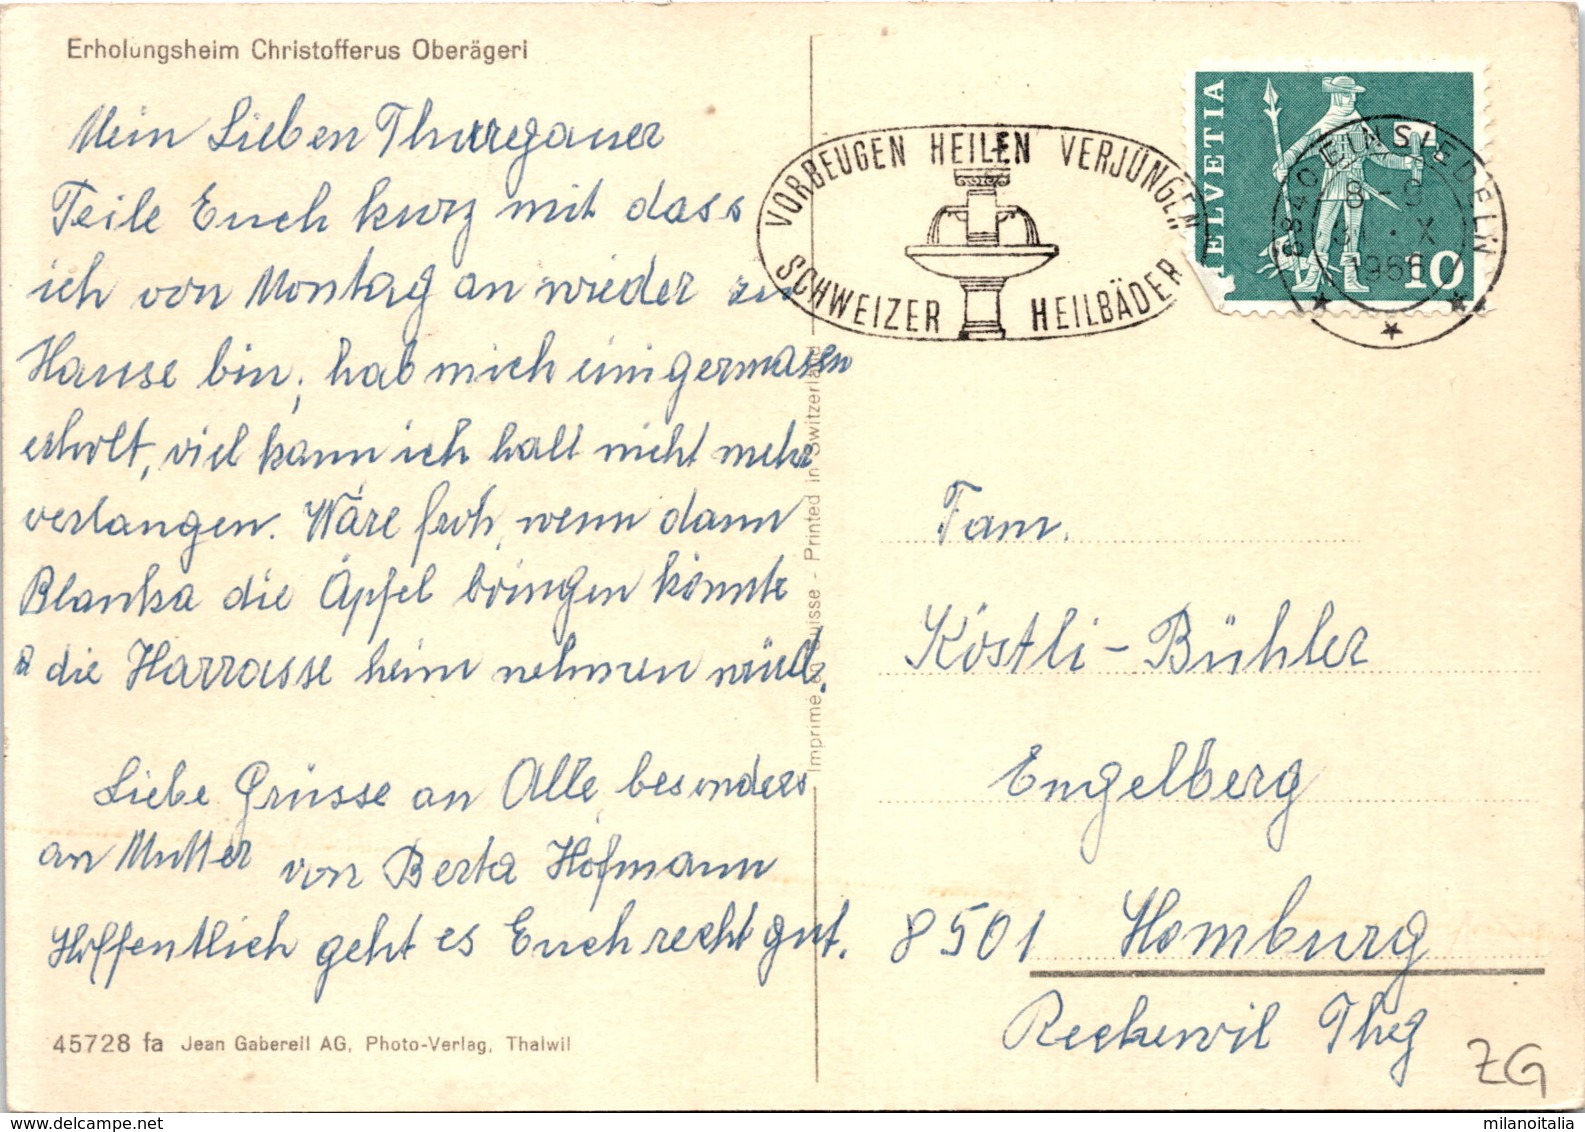 Erholungsheim Christofferus Oberägeri
Mein Lieben Thuregauer
Teile Euch kurz mit dass
ich von Montag an wieder zu
Hause bin, hab mich einigermassen
erholt, viel kann ich halt nicht mehr
verlangen. Wäre froh, wenn dann
Blanka die Äpfel bringen könnte
die Harrasse heim nehmen würd.
Liebe Grüsse an Alle, besonders
an Mutter von Berta Hofmann
Hoffentlich geht es Euch recht gut.
45728 fa Jean Gabereil AG, Photo-Verlag, Thalwil
Imprimé en Suisse - Printed in Switzerland
VORBEUGEN HEILEN VERJÜNGEN
SCHWEIZER HEILBÄDER
HELVETIA
10
8840 EINSIEDELN
8-9
X
1966
Fam.
Köstli-Bühler
Engelberg
8501 Homburg
Reckenwil Thg
ZG
milanoitalia